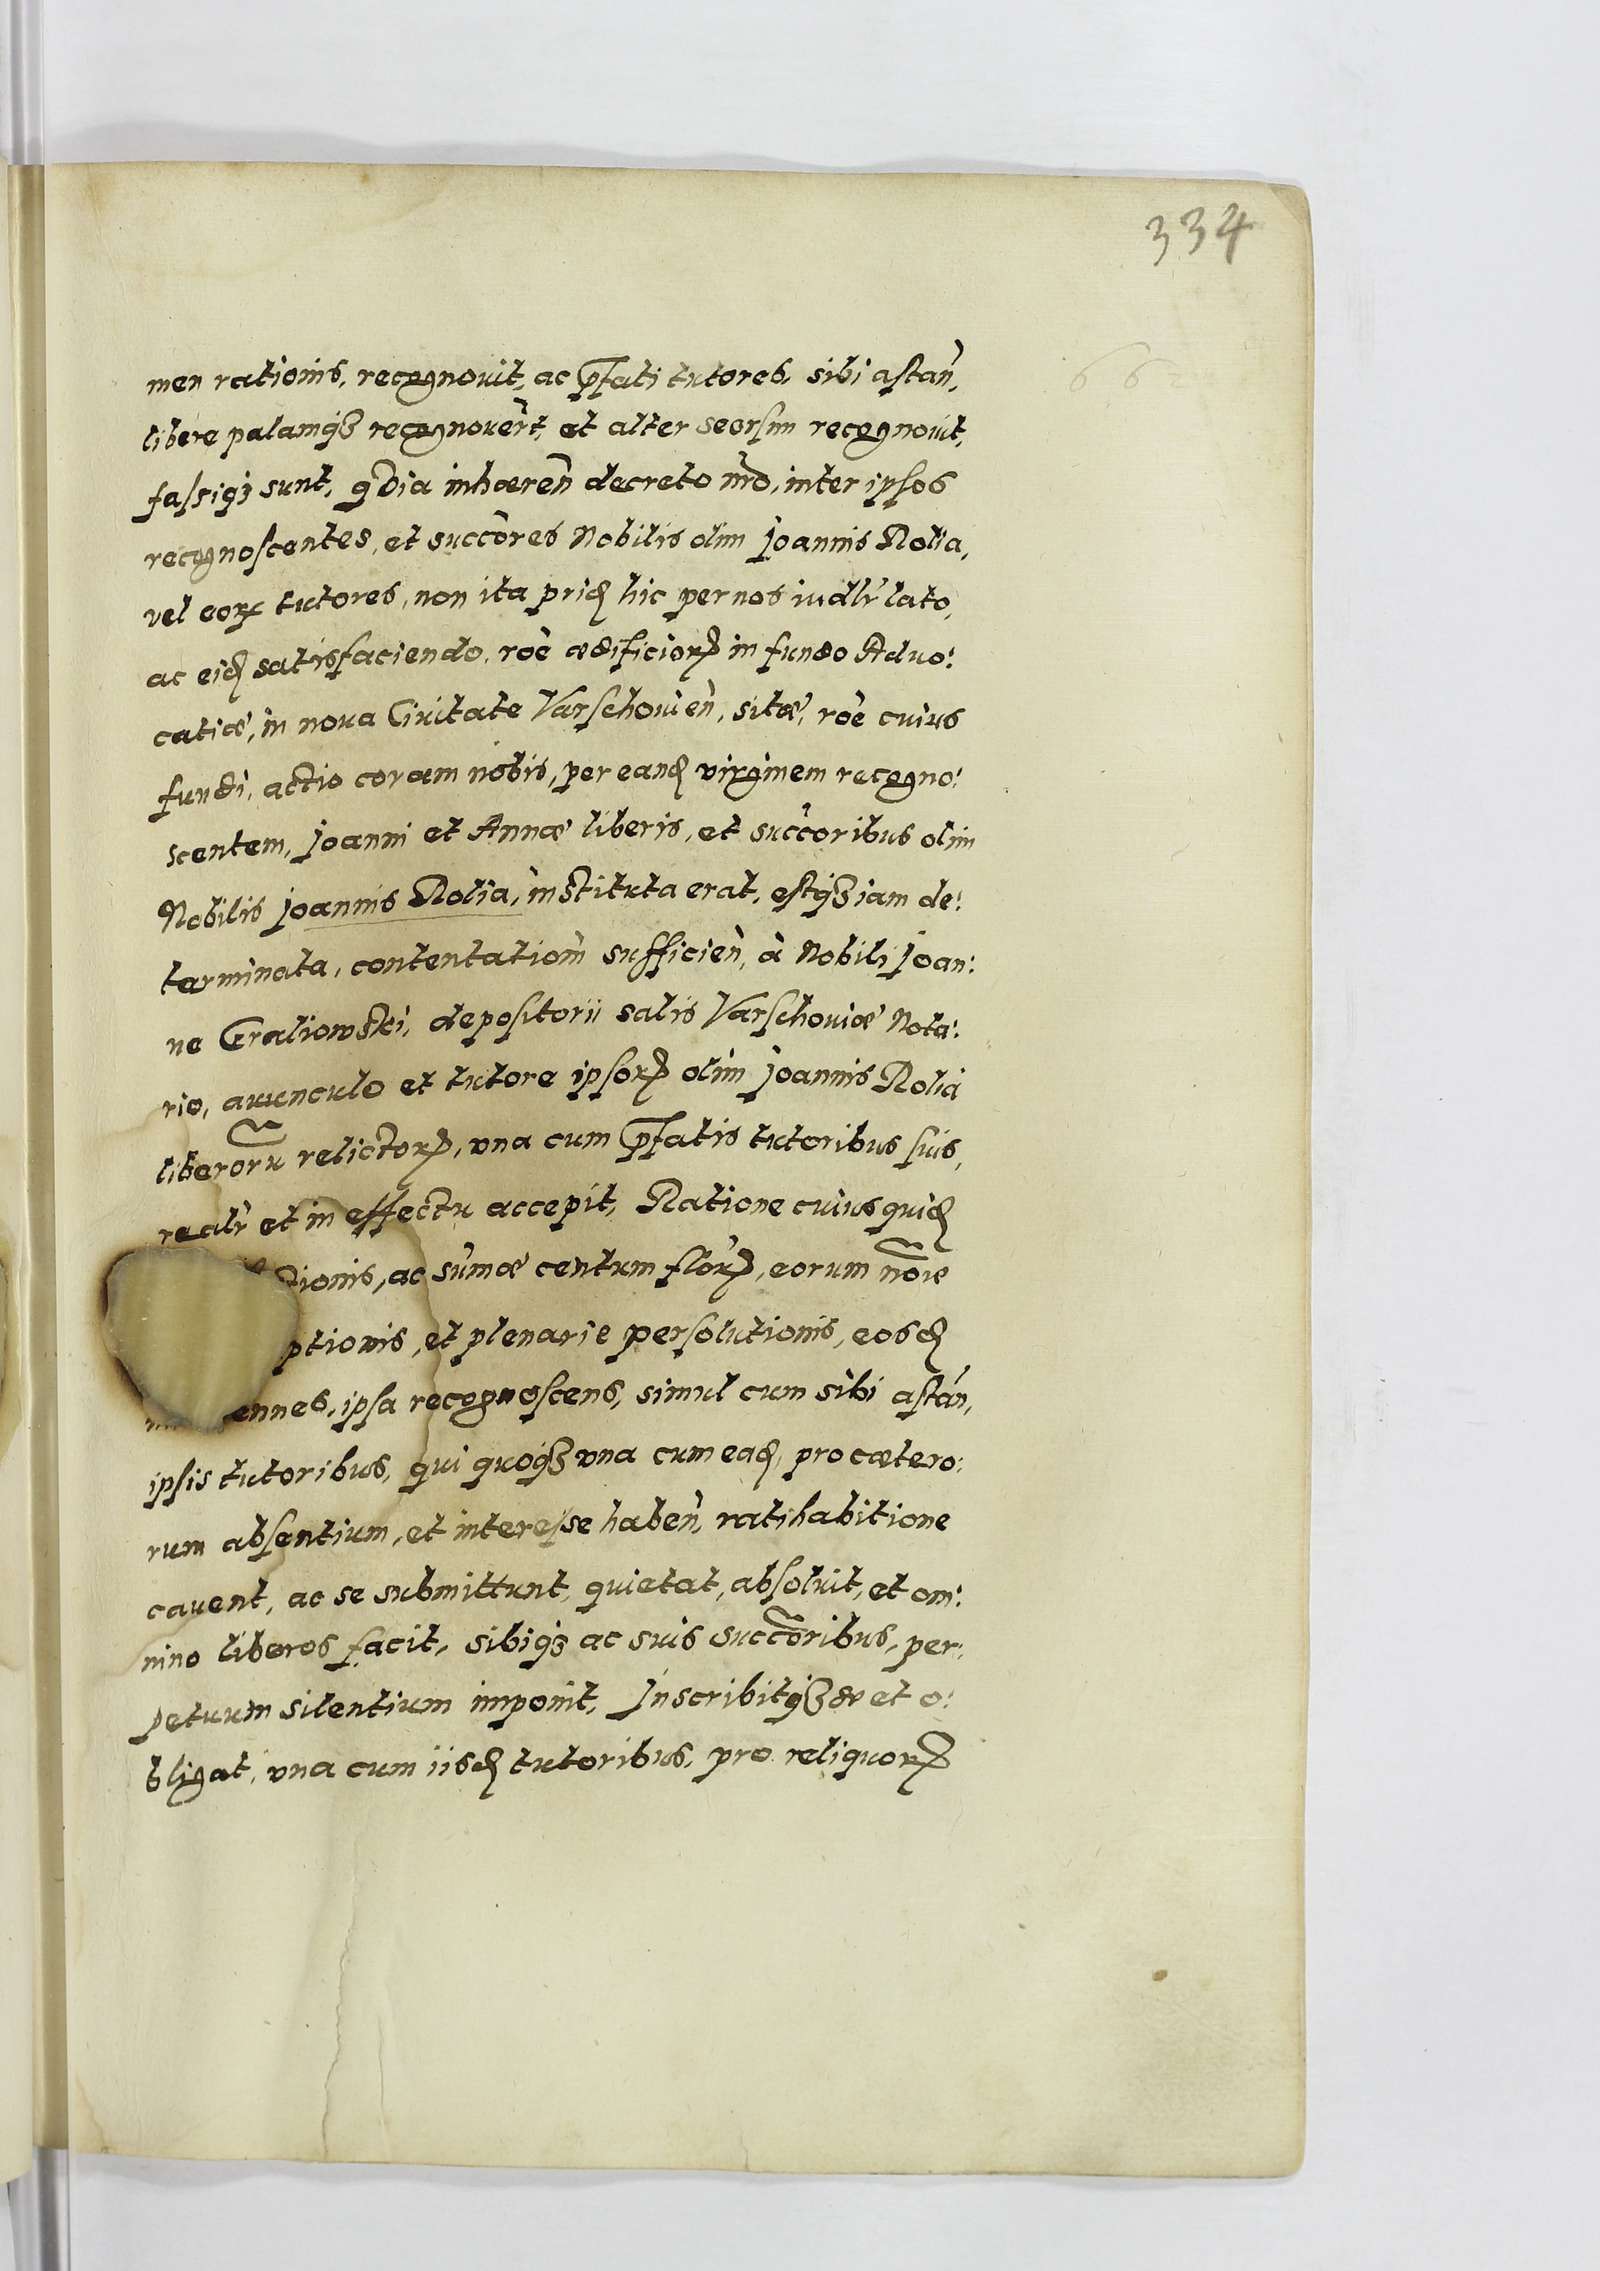 334
men rationis, recognouit, ac p̃fati tutores, sibi astan̄,
libere palamq3 recognouer̄t, et alter seorsim recognouit,
fassiq3 sunt, q̃ Dia inhæren̄ decreto nr̃o, inter ipsos
recognoscentes, et succores Nobilis olim Joannis Rolia,
vel eoꝝ tutores, non ita prid hic per nos iudlr̃ lato,
ac eid satisfaciendo, roe ædificioꝝ in fundo Aduo:
catiæ, in noua Ciuitate Varschouien̄, sitæ, roe cuius
fundi, actio coram nobis, per eand virginem recogno:
scentem, Joanni et Annæ liberis, et succoribus olim
Nobilis Joannis Rolia, instituta erat, estq3 iam de:
terminata, contentatiom̄ sufficien̄, à Nobili Joan:
ne Graliowski, depositorii salis Varschouiæ Nota:
rio, auunculo et tutore ipsoꝝ olim Joannis Rolia
liberoru relictoꝝ, vna cum p̃fatis tutoribus suis,
realr̃ et in effectu accepit, Ratione cuius quid
tionis, ac sum̄æ centum floꝝ, eorum noīe
ptionis, et plenarie persolutionis, eosd
ennes, ipsa recognoscens, simul cum sibi astan̄,
ipsis tutoribus, qui quoq3 vna cum ead, pro cætero:
rum absentium, et interesse haben̄, ratihabitione
cauent, ac se submittunt, quietat, absoluit, et om:
nino liberos facit, sibiq3 ac suis succoribus, per:
petuum silentium imponit, Inscribitq3 se et o:
bligat, vna cum iisd tutoribus, pro reliquoꝝ